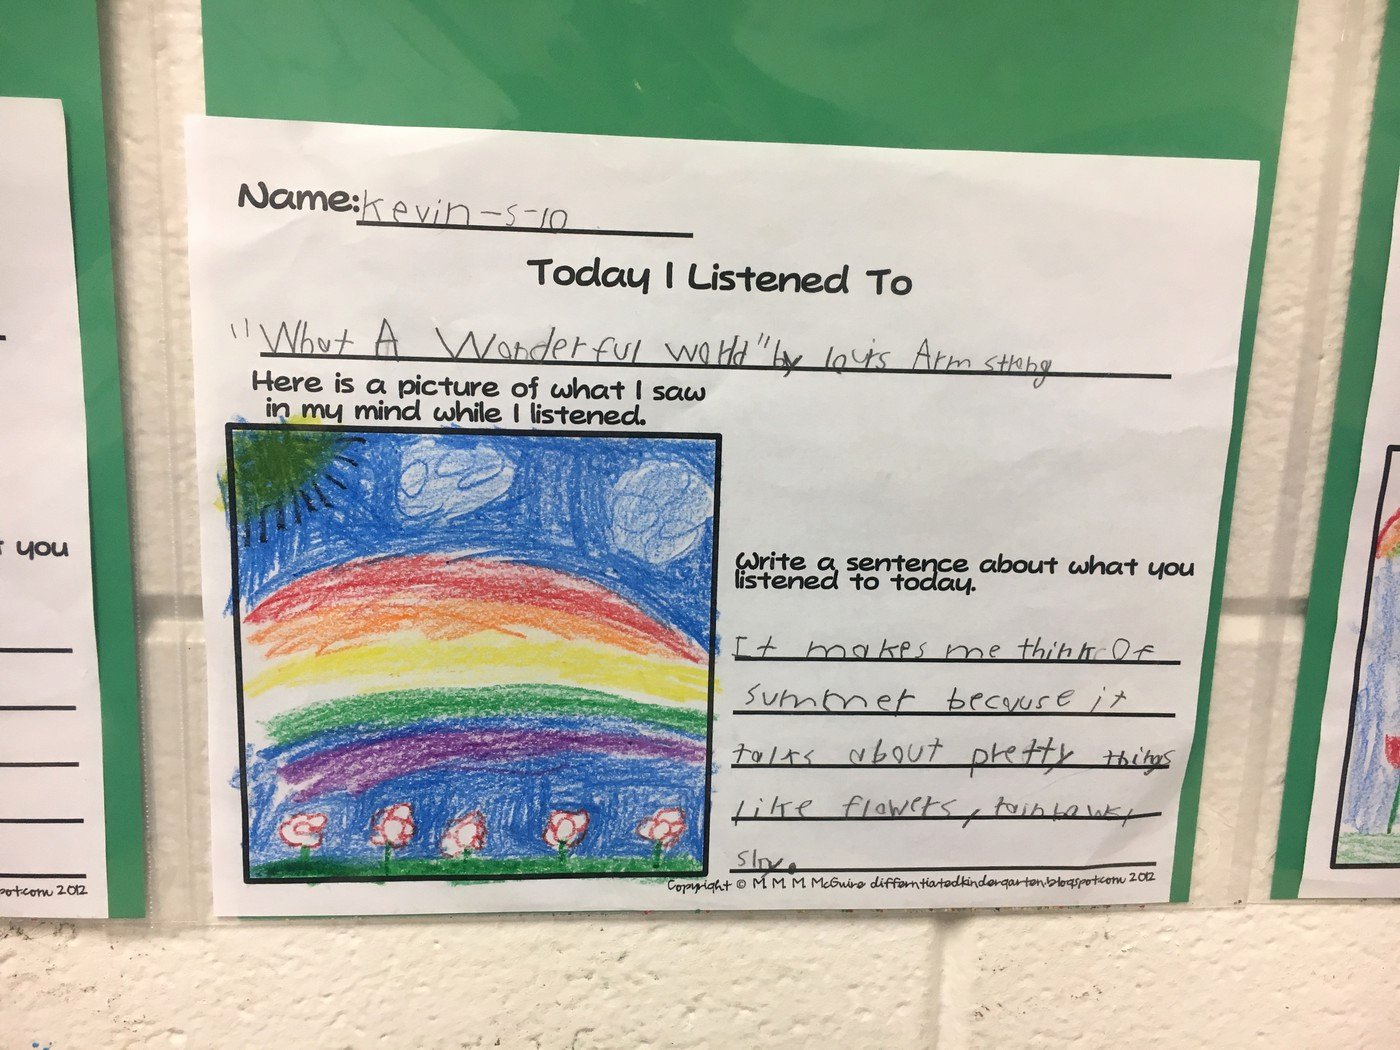 Name: Kevin-S-10
Today I Listened To
"What A Wonderful world" by louis Armstrong
Here is a picture of what I saw
in my mind while I listened.
Write a sentence about what you
listened to today.
It makes me think Of
summer because it
talks about pretty things
like flowers, rainbows,
sky.
Copyright © M M M McGuire differntiatedkindergarten.blogspot.com 2012
you
pot.com 2012